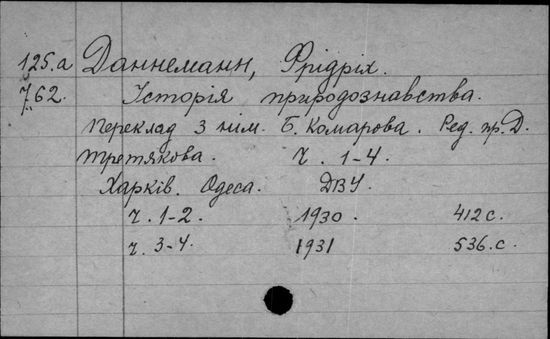 125.а Даннеманн, Фрідріх.
762. Історія природознавства.
Переклад з нім. Б. Комарова. Ред. пр. Д.
Третякова. Ч. 1-4.
Харків. Одеса. ДВУ.
ч. 1-2. 1930. 412 с.
ч. 3-4. 1931 536. с.